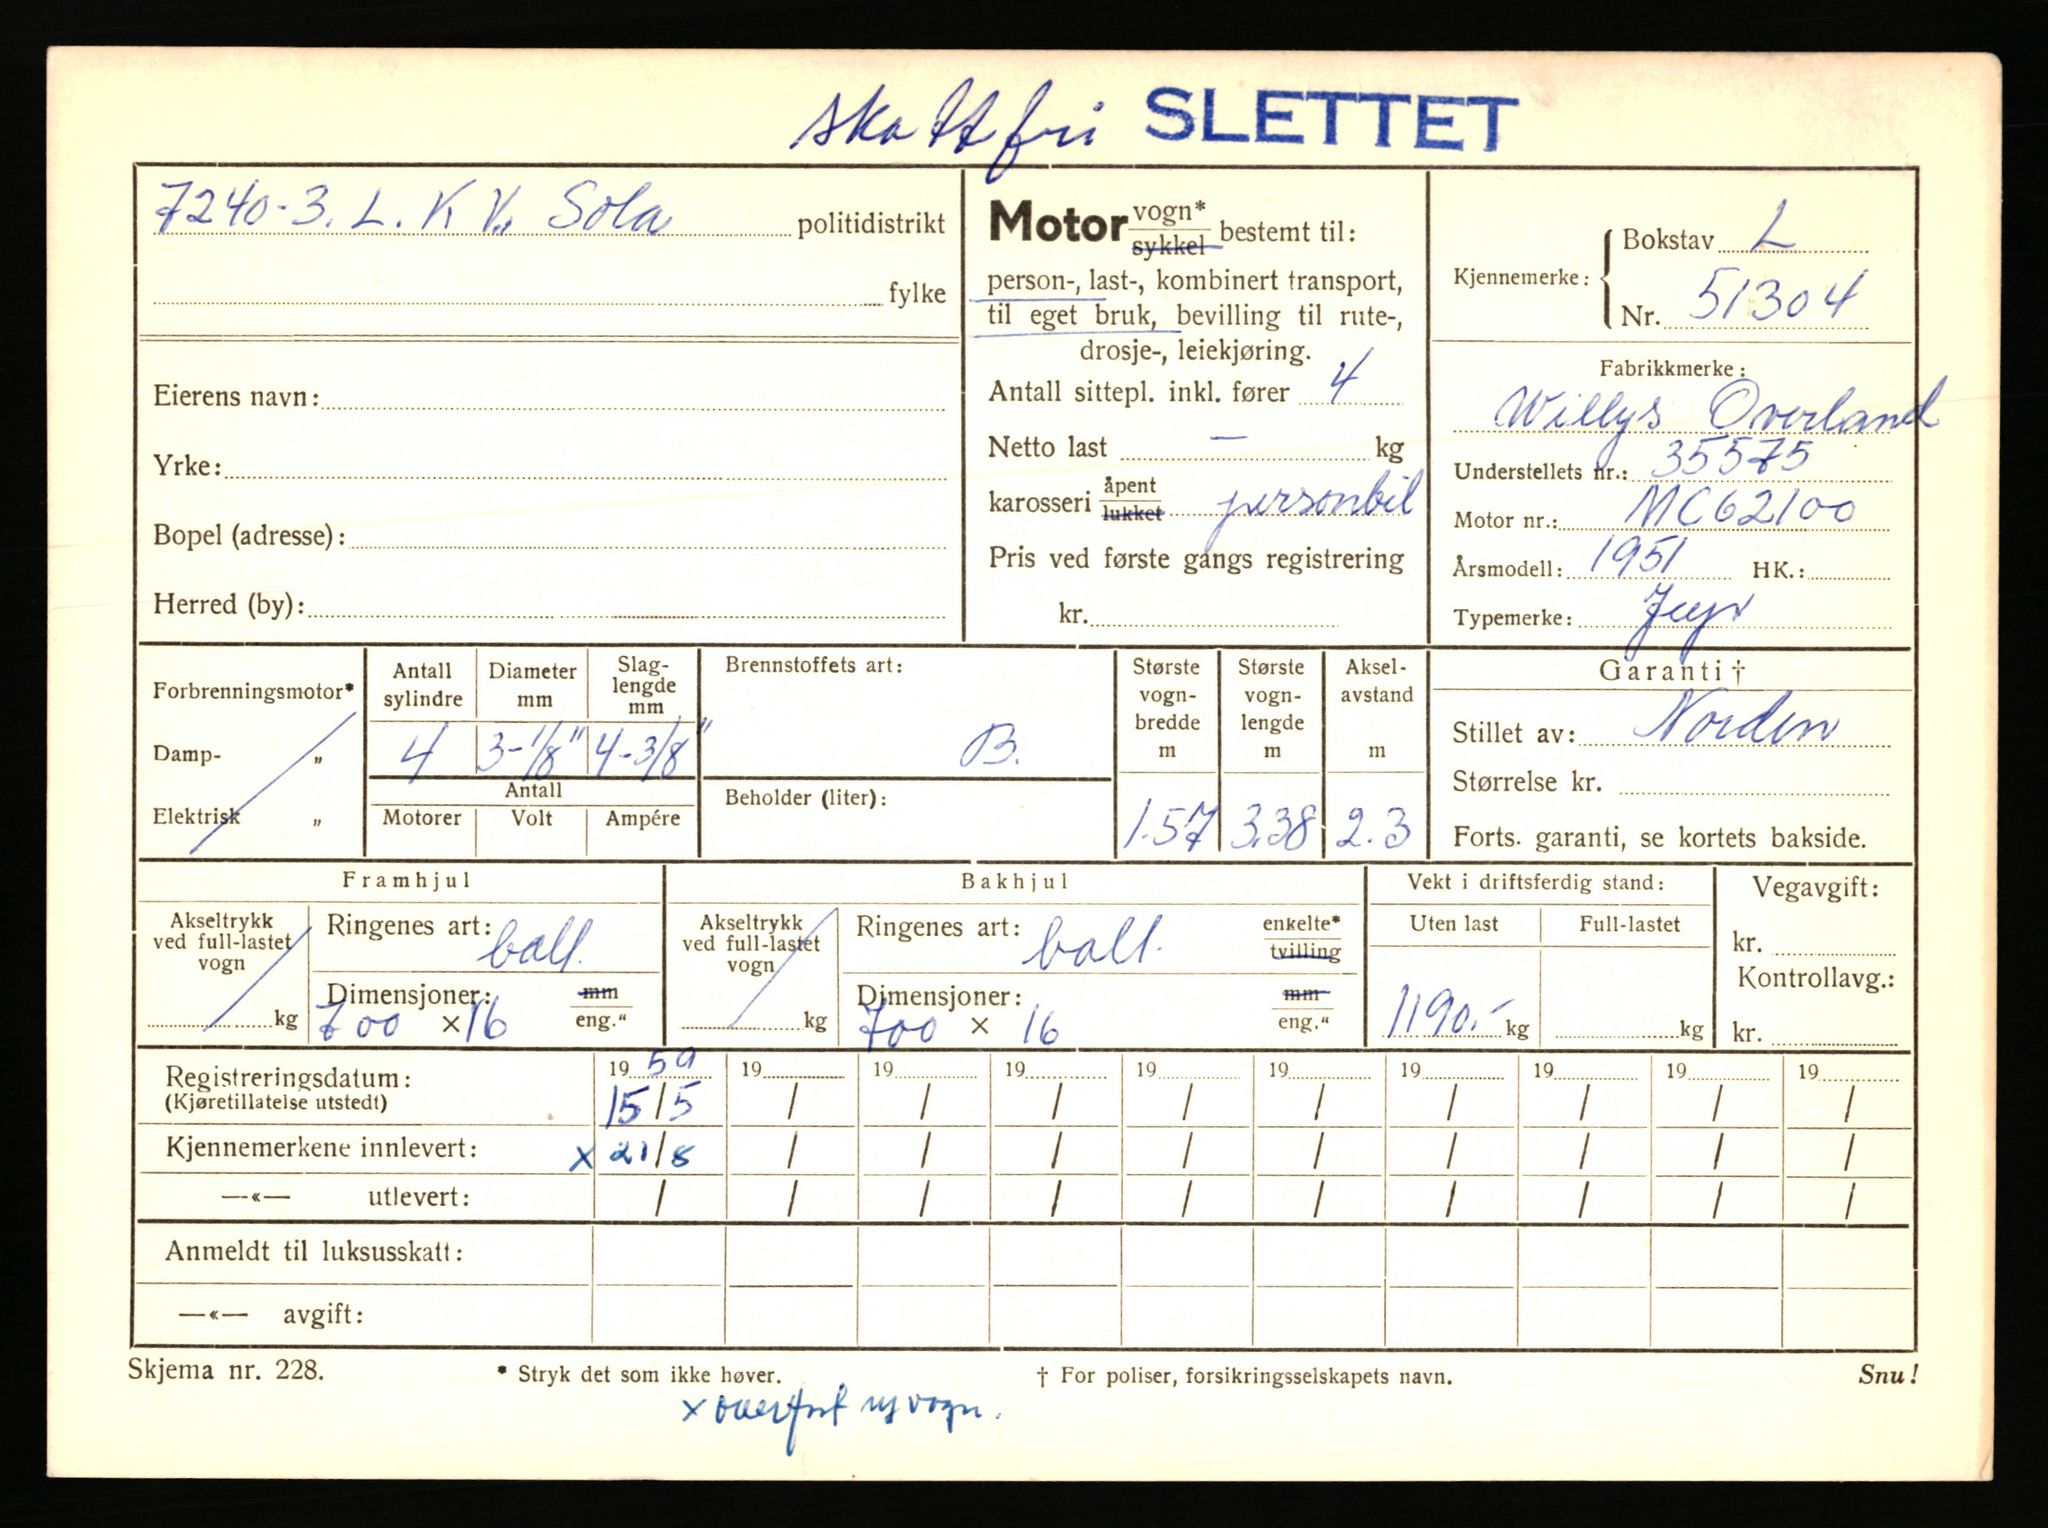 skattfri SLETTET
7240-3. L. K V., Sola politidistrikt
fylke
Eierens navn:
Yrke:
Bopel (adresse):
Herred (by):
Motor vogn* sykkel bestemt til:
person-, last-, kombinert transport,
til eget bruk, bevilling til rute-,
drosje-, leiekjøring.
Antall sittepl. inkl. fører 4
Netto last — kg
karosseri åpent lukket personbil
Pris ved første gangs registrering
kr.
Kjennemerke: Bokstav L
Nr. 51304
Fabrikkmerke:
Willys Overland
Understellets nr.: 35575
Motor nr.: MC62100
Årsmodell: 1951 HK.:
Typemerke: Jeep
Forbrenningsmotor*
Damp- „
Elektrisk „
Antall sylindre
Diameter mm
Slag-
lengde
mm
4 3-1/8" 4-3/8"
Antall
Motorer Volt Ampére
Brennstoffets art:
B.
Beholder (liter):
Største
vogn-
bredde
m
1.57
Største
vogn-
lengde
m
3.38
Aksel-
avstand
m
2.3
Garanti †
Stillet av: Norden
Størrelse kr.
Forts. garanti, se kortets bakside.
Framhjul
Akseltrykk
ved full-lastet
vogn
kg
Ringenes art: ball.
Dimensjoner: mm eng."
700 × 16
Bakhjul
Akseltrykk
ved full-lastet
vogn
kg
Ringenes art: ball. enkelte* tvilling
Dimensjoner: mm eng."
700 × 16
Vekt i driftsferdig stand:
Uten last Full-lastet
1190.- kg kg
Vegavgift:
kr.
Kontrollavg.:
kr.
19 59 19 19 19 19 19 19 19 19 19
Registreringsdatum: 15/5 / / / / / / / / /
(Kjøretillatelse utstedt)
Kjennemerkene innlevert: x 21/8 / / / / / / / / /
—«— utlevert: / / / / / / / / / /
Anmeldt til luksusskatt:
—«— avgift:
Skjema nr. 228. * Stryk det som ikke høver. † For poliser, forsikringsselskapets navn. Snu!
x overført ny vogn.